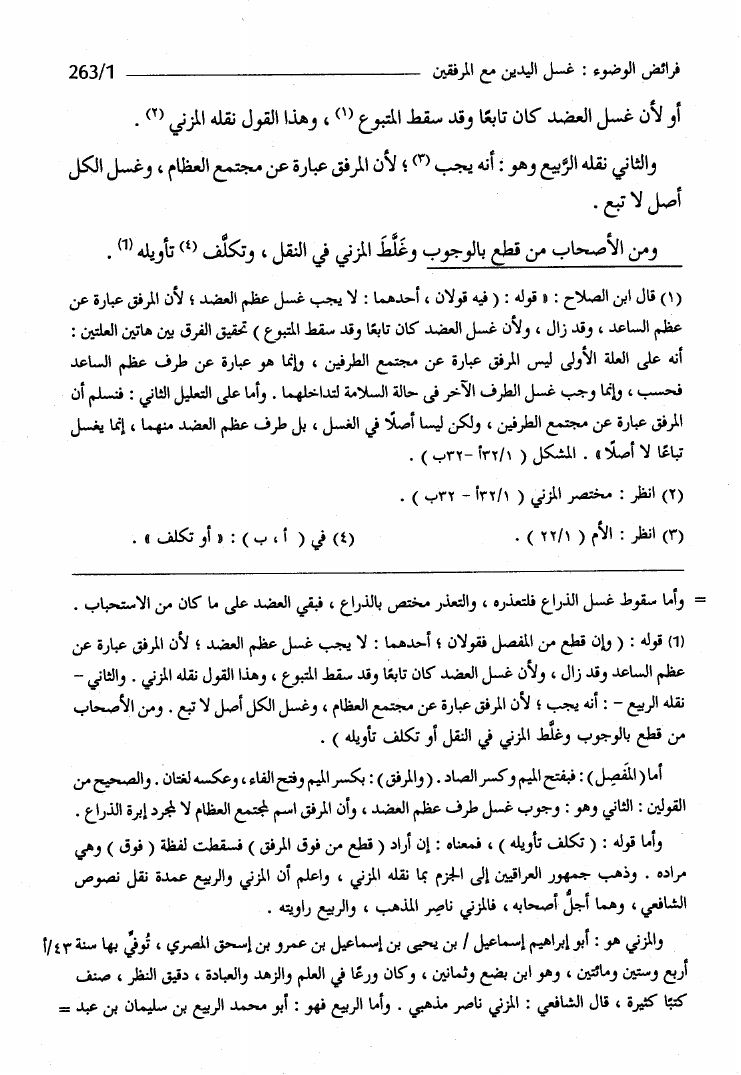 فرائض الوضوء : غسل اليدين مع المرفقين ـــــــــــــ 263/1
أو لأن غسل العضد كان تابعًا وقد سقط المتبوع (١) ، وهذا القول نقله المزني (٢) .
والثاني نقله الرَّبيع وهو : أنه يجب (٣) ؛ لأن المرفق عبارة عن مجتمع العظام ، وغسل الكل
أصل لا تبع .
ومن الأصحاب من قطع بالوجوب وغَلَّطَ المزني في النقل ، وتكلَّف (٤) تأويله (1) .
(١) قال ابن الصلاح : « قوله : ( فيه قولان ، أحدهما : لا يجب غسل عظم العضد ؛ لأن المرفق عبارة عن
عظم الساعد ، وقد زال ، ولأن غسل العضد كان تابعًا وقد سقط المتبوع ) تحقيق الفرق بين هاتين العلتين :
أنه على العلة الأولى ليس المرفق عبارة عن مجتمع الطرفين ، وإنما هو عبارة عن طرف عظم الساعد
فحسب ، وإنما وجب غسل الطرف الآخر فى حالة السلامة لتداخلهما . وأما على التعليل الثاني : فنسلم أن
المرفق عبارة عن مجتمع الطرفين ، ولكن ليسا أصلًا في الغسل ، بل طرف عظم العضد منهما ، إنما يغسل
تباعًا لا أصلًا » . المشكل ( ٣٢/١أ -٣٢ب ) .
(٢) انظر : مختصر المزني ( ٣٢/١أ - ٣٢ب ) .
(٣) انظر : الأم ( ٢٢/١ ) . (٤) في ( أ ، ب ) : « أو تكلف » .
= وأما سقوط غسل الذراع فلتعذره ، والتعذر مختص بالذراع ، فبقي العضد على ما كان من الاستحباب .
(1) قوله : ( وإن قطع من المفصل فقولان ؛ أحدهما : لا يجب غسل عظم العضد ؛ لأن المرفق عبارة عن
عظم الساعد وقد زال ، ولأن غسل العضد كان تابعًا وقد سقط المتبوع ، وهذا القول نقله المزني . والثاني -
نقله الربيع - : أنه يجب ؛ لأن المرفق عبارة عن مجتمع العظام ، وغسل الكل أصل لا تبع . ومن الأصحاب
من قطع بالوجوب وغلَّط المزني في النقل أو تكلف تأويله ) .
أما ( المَفصِل ) : فبفتح الميم وكسر الصاد . ( والمرفق ) : بكسر الميم وفتح الفاء ، وعكسه لغتان . والصحيح من
القولين : الثاني وهو : وجوب غسل طرف عظم العضد ، وأن المرفق اسم لمجتمع العظام لا لمجرد إبرة الذراع .
وأما قوله : ( تكلف تأويله ) ، فمعناه : إن أراد ( قطع من فوق المرفق ) فسقطت لفظة ( فوق ) وهي
مراده . وذهب جمهور العراقيين إلى الجزم بما نقله المزني ، واعلم أن المزني والربيع عمدة نقل نصوص
الشافعي ، وهما أجلُّ أصحابه ، فالمزني ناصِر المذهب ، والربيع راويته .
والمزني هو : أبو إبراهيم إسماعيل / بن يحيى بن إسماعيل بن عمرو بن إسحق المصري ، تُوفيِّ بها سنة ٤٣/أ
أربع وستين ومائتين ، وهو ابن بضع وثمانين ، وكان ورعًا في العلم والزهد والعبادة ، دقيق النظر ، صنف
كتبًا كثيرة ، قال الشافعي : المزني ناصر مذهبي . وأما الربيع فهو : أبو محمد الربيع بن سليمان بن عبد =